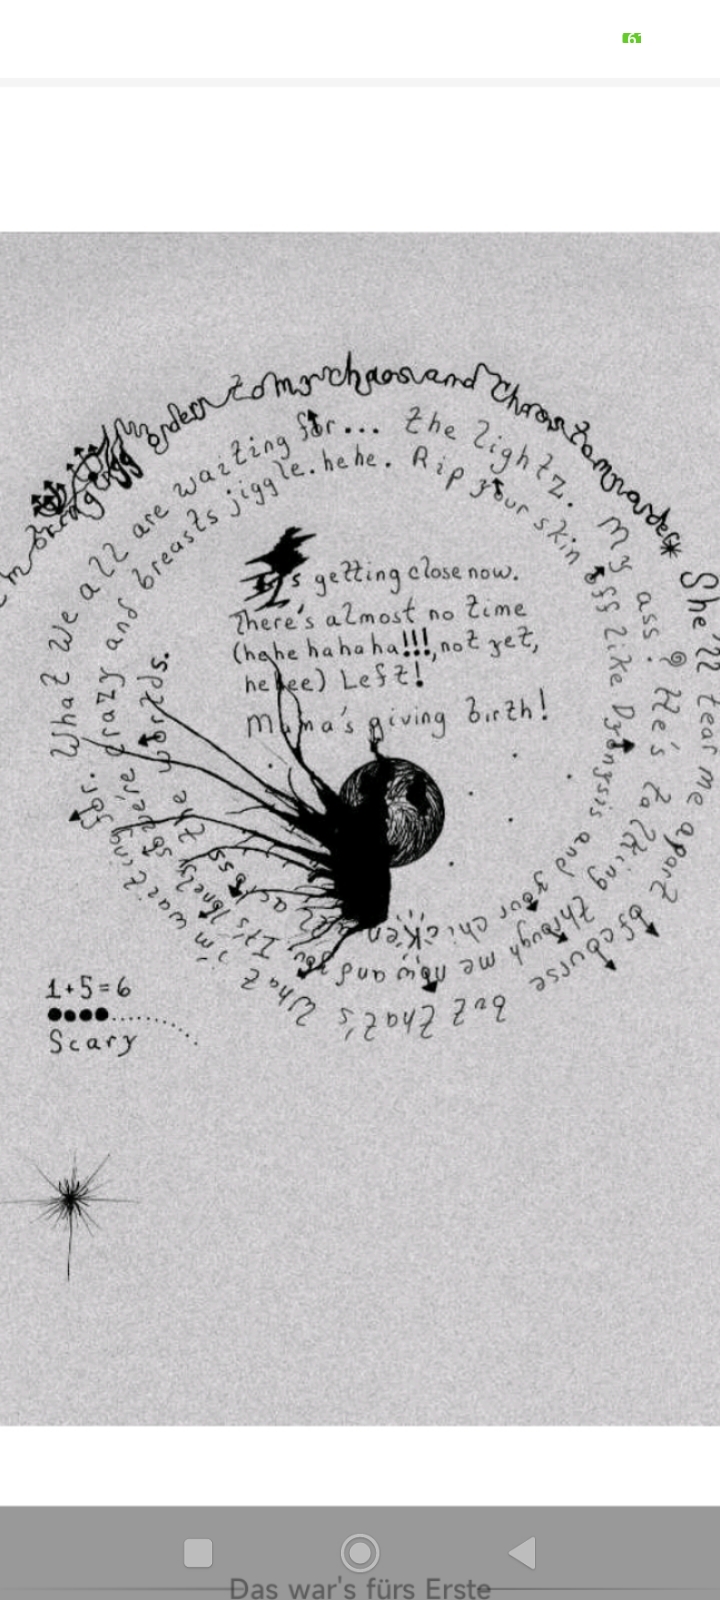 61
I'm bringing order to my chaos and chaos to my order*
She'll tear me apart of course but that's what i'm waiting for. What we all are waiting for... the lightz. My ass! He's talking through me now and you. It's lonely so we're crazy and breasts jiggle. hehe. Rip your skin off like Dyonysis and your chicken all across the worlds.
It's getting close now.
There's almost no time
(hehe hahaha!!!, not yet,
heheee) Left!
Mama's giving birth!
1+5=6
Scary
Das war's fürs Erste